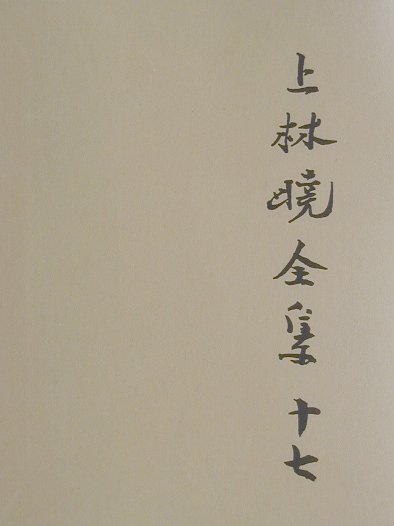 上林暁全集 十七